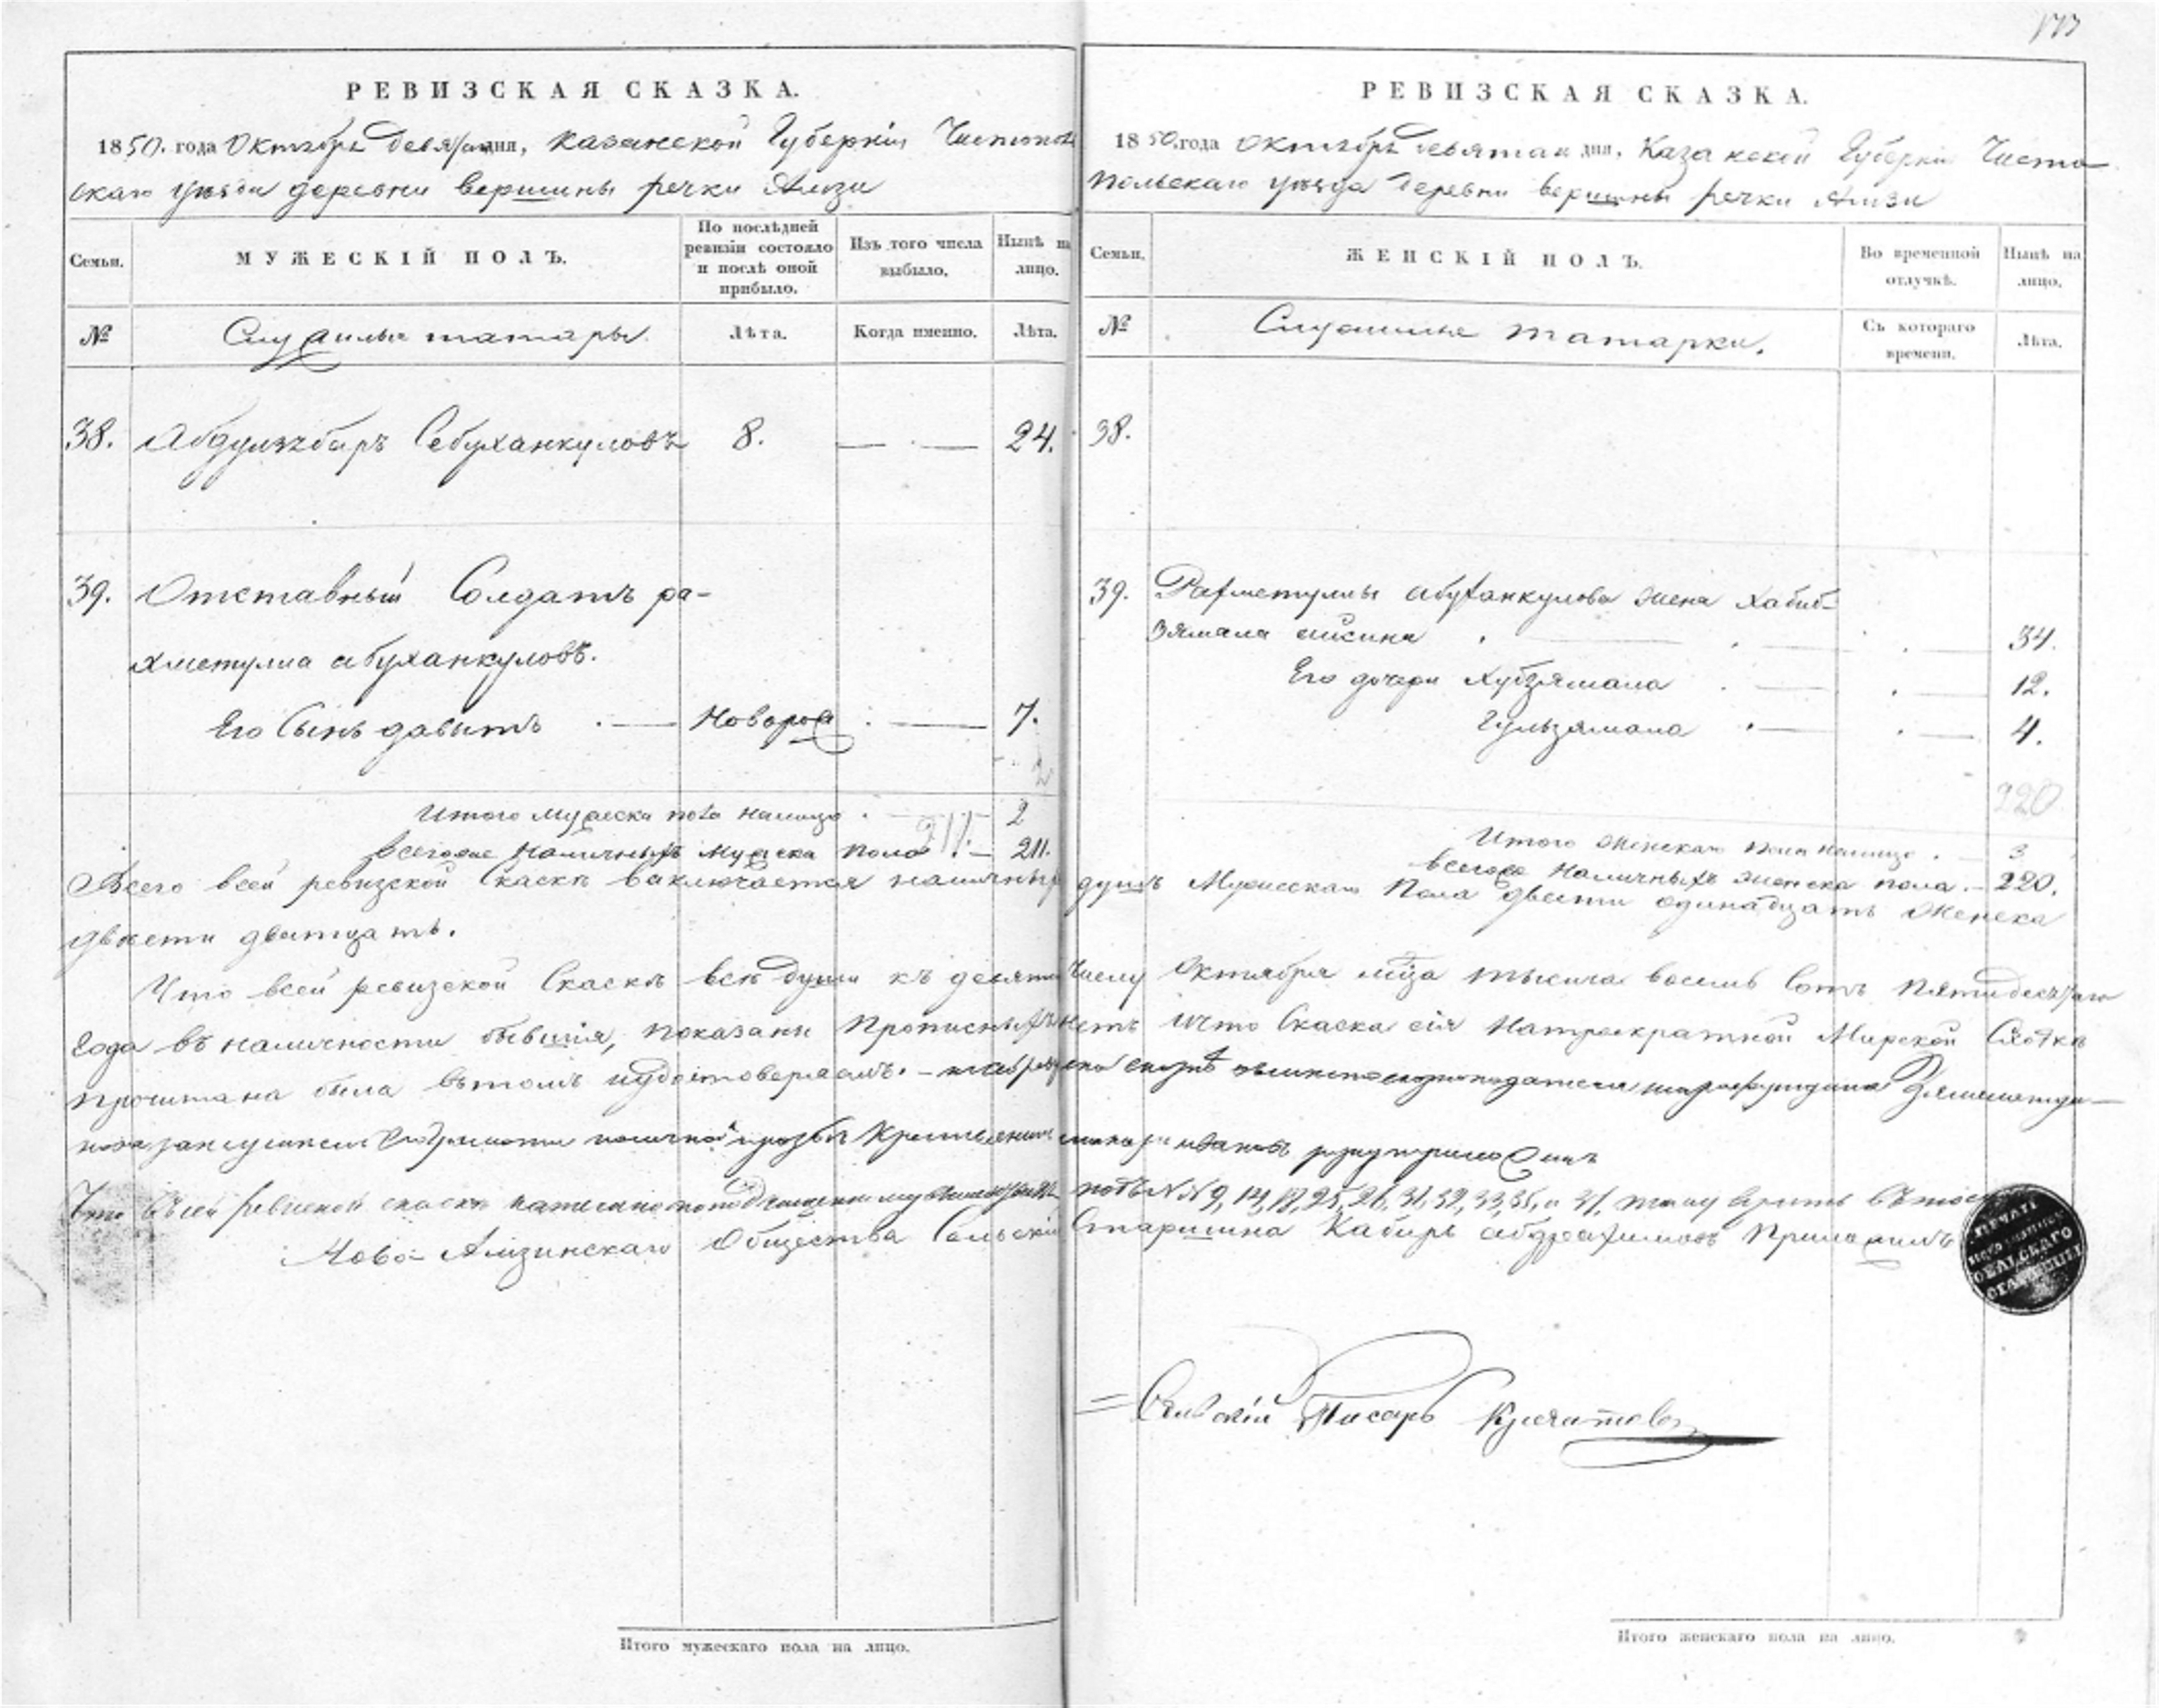 173
РЕВИЗСКАЯ СКАЗКА.
1850. года Октября девятаго дня, Казанской Губерніи Чистополь
скаго уѣзда деревни вершины речки Амзи
Семьи.
МУЖЕСКІЙ ПОЛЪ.
По послѣдней ревизіи состояло и послѣ оной прибыло.
Изъ того числа выбыло.
Нынѣ на лицо.
№
Служилые татары.
Лѣта.
Когда именно.
Лѣта.
38. Абдулзбаръ Себуханкуловъ 8. — 24.
39. Отставный Солдатъ ра-
хметулла абуханкуловъ.
Его Сынъ давытъ — Новорож — 7.
2
Итого мужеска пола налицо — 2
211
Всегоже наличныхъ мужеска пола — 211.
РЕВИЗСКАЯ СКАЗКА.
1850. года октября девятаго дня, Казанской Губерніи Чисто
польскаго уѣзда деревни вершины речки Амзи
Семьи.
ЖЕНСКІЙ ПОЛЪ.
Во временной отлучкѣ.
Нынѣ на лицо.
№
Служилые татарки.
Съ котораго времени.
Лѣта.
38.
39. Рахметуллы абуханкулова жена Хабиб-
зямала — 34.
Его дочери Хубзямала — 12.
Гульзямала — 4.
220
Итого женскаго пола налицо — 3
всегоже наличныхъ женска пола — 220.
Всего всей ревизской Скаскѣ заключается наличныхъ душъ Мужескаго Пола двести одинадцать Женска
двѣсти дватцать.
Что всей ревизской Скаскѣ всѣ души къ девятому Числу Октября мца тысяча восемь Сотъ пятидесятаго
года въ наличности бывшія, показаны прописныхъ нетъ ичто Скаска сія Натроекратной Мирской Сходкѣ
прочитана была вътомъ иудостоверяемъ. —
Крестьянинъ ивановъ руку приложилъ
Что въсей ревиской скаскѣ NN 9, 14, 18, 25, 26, 31, 32, 33, 35, и 37,
Ново-Амзинскаго Общества Сельскій Старшина Кабиръ абдрахимовъ Приложилъ
ПЕЧАТЬ
СЕЛЬСКАГО
СТАРШИНЫ
Сельскій Писарь
Итого мужескаго пола на лицо.
Итого женскаго пола на лицо.